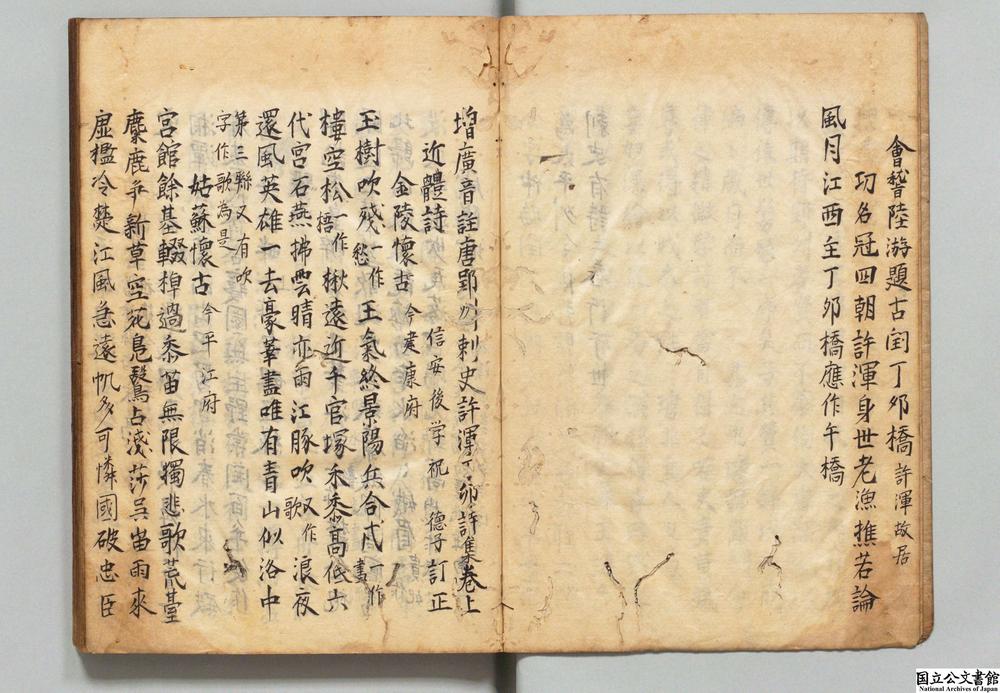 會稽陸游題古閏丁夘橋 許渾故居
功名冠四朝許渾身世老漁樵若論
風月江西主丁夘橋應作午橋
增廣音註唐郢州刺史許渾丁夘詩集卷上
近體詩 信安後学祝德子訂正
金陵懷古 今建康府
玉樹吹残一作愁王氣終景陽兵合戍一作畫
樓空松一作梧楸遠近千官塚禾黍高低六
代宮石燕拂雲晴亦雨江豚吹又作歌浪夜
還風英雄一去豪華盡唯有青山似洛中
第三聯又有吹
字作歌為是
姑蘇懷古 今平江府
宮館餘基輟棹過黍苗無限獨悲歌荒臺
麋鹿爭新草空苑鳧鷖占淺莎吳岫雨來
虛檻冷楚江風急遠帆多可憐國破忠臣
国立公文書館
National Archives of Japan